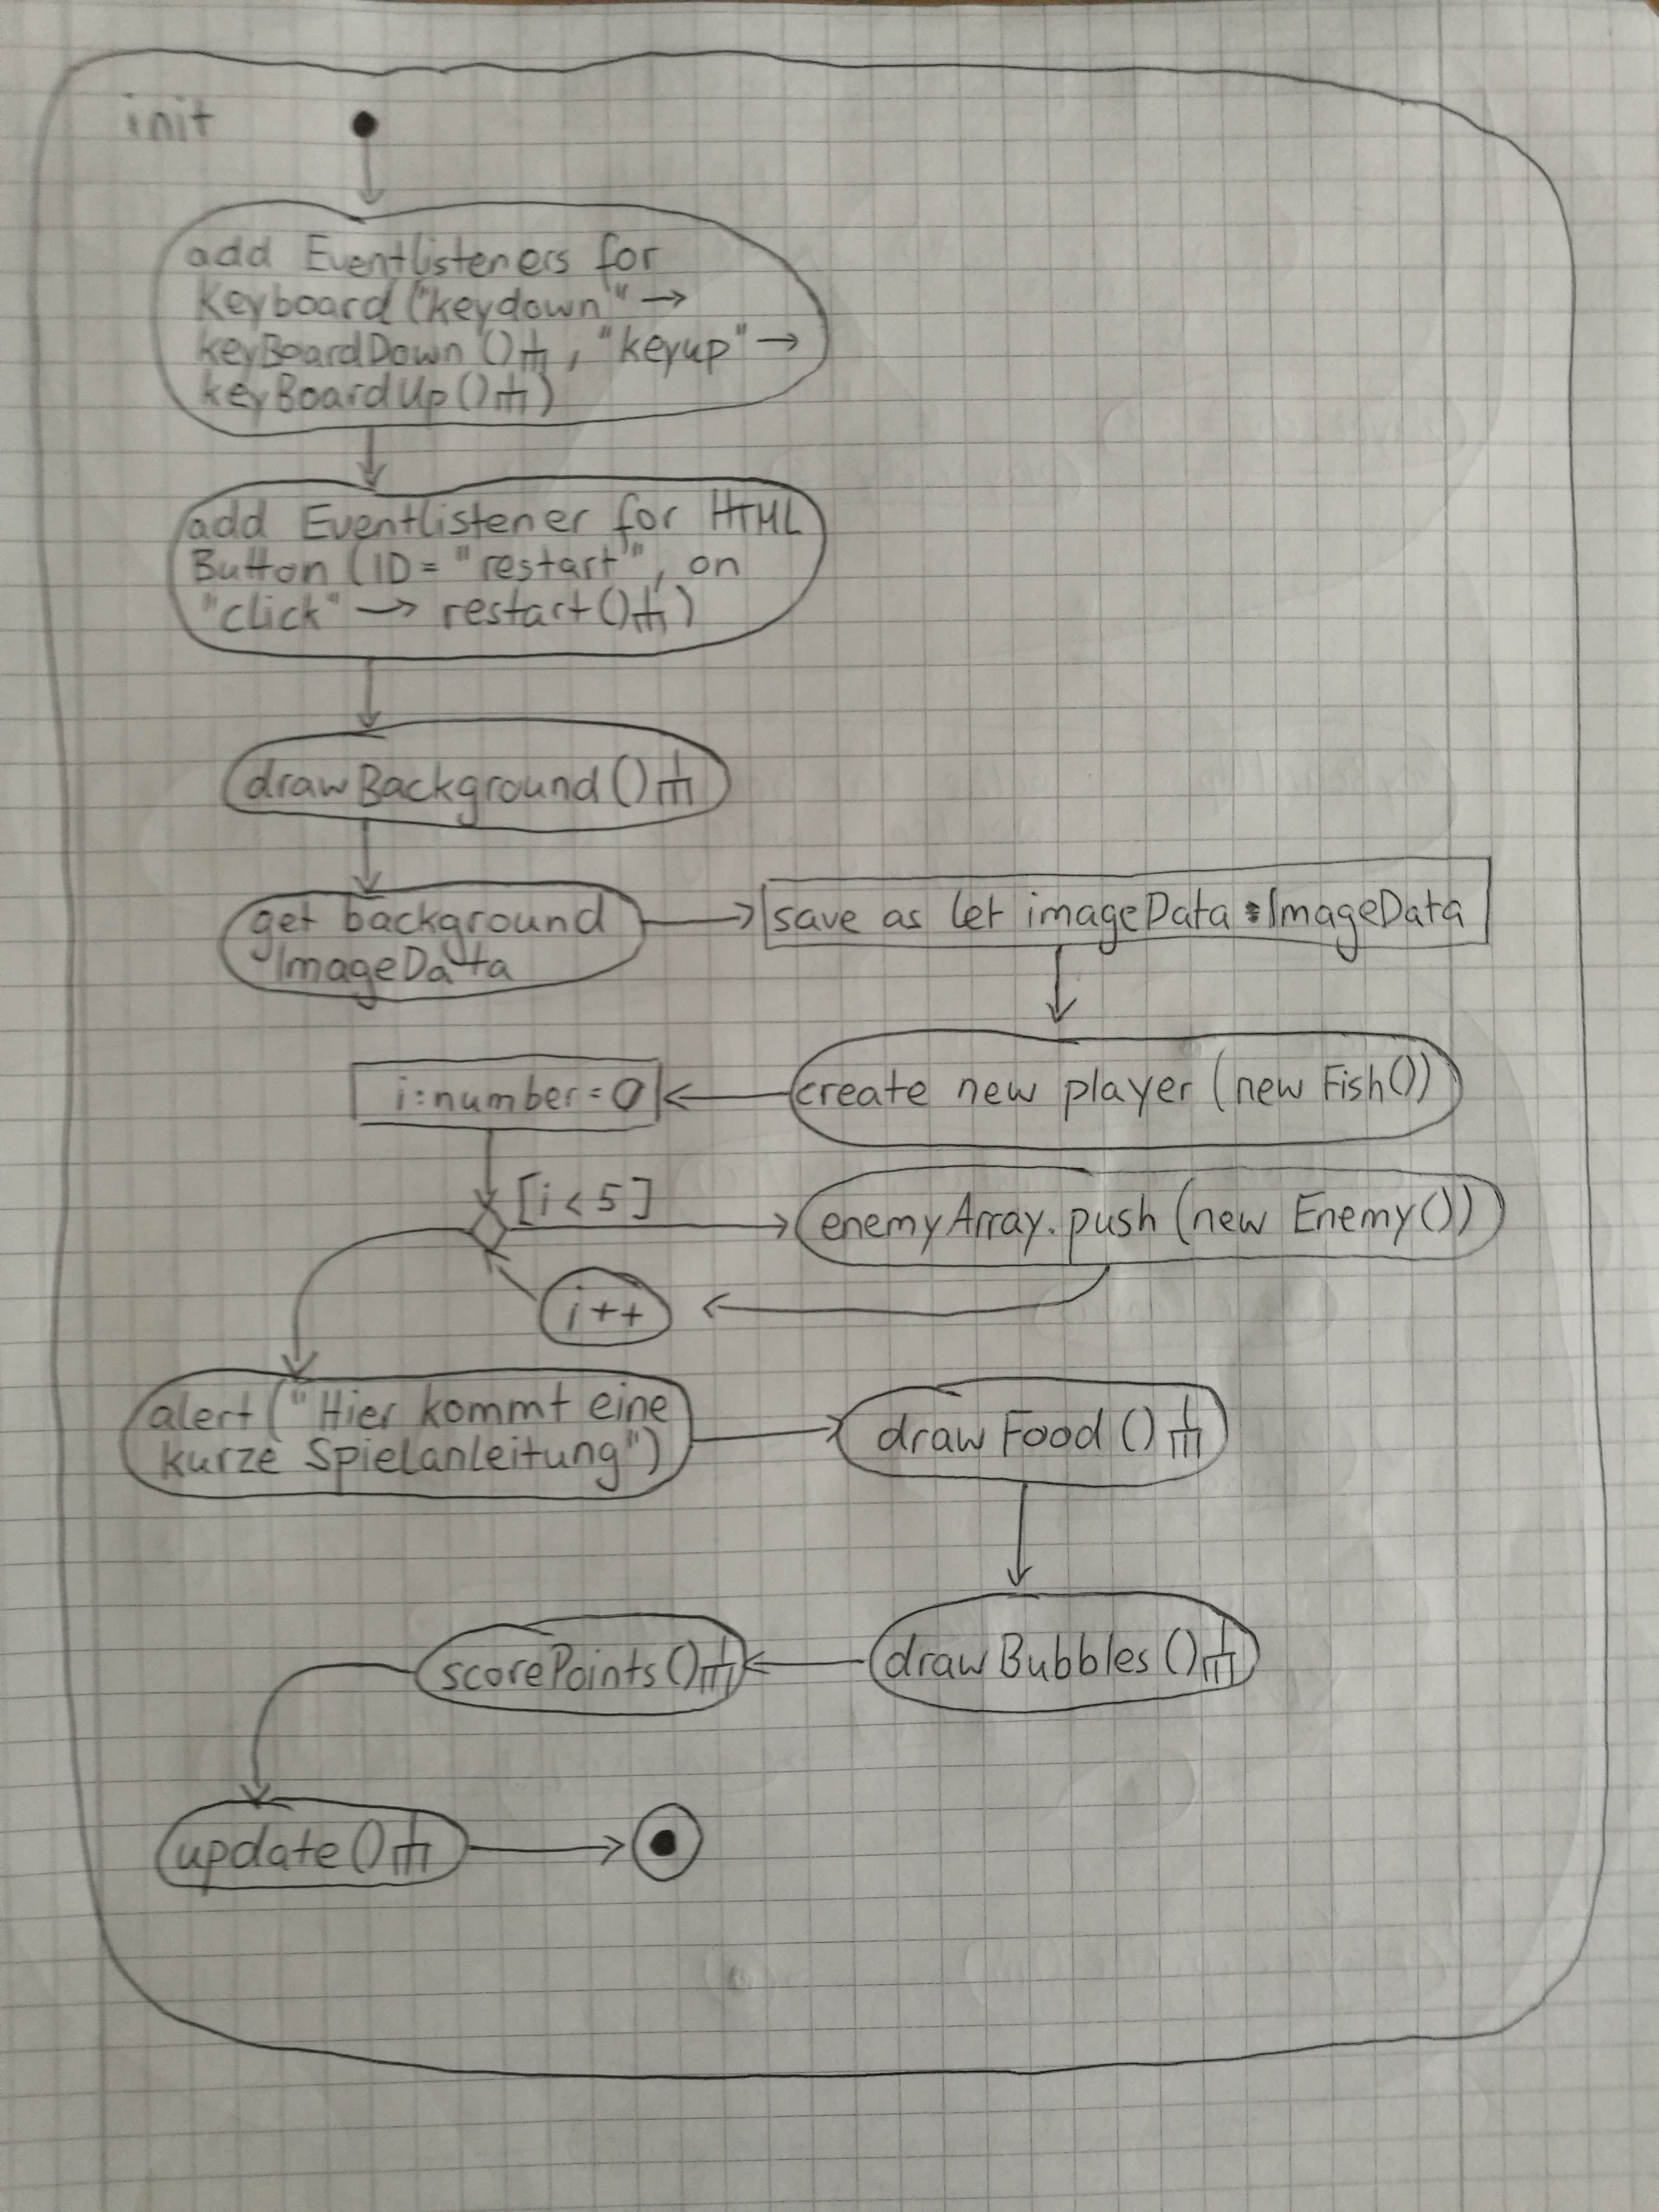 init
add Eventlisteners for
Keyboard ("keydown" →
keyBoardDown (), "keyup" →
keyBoardUp ())
add Eventlistener for HTML
Button (ID = "restart", on
"click" → restart ())
drawBackground ()
get background
ImageData
save as let imageData : ImageData
create new player (new Fish())
i : number = 0
[i < 5]
enemyArray.push (new Enemy())
i++
alert ("Hier kommt eine
kurze Spielanleitung")
drawFood ()
drawBubbles ()
scorePoints ()
update ()